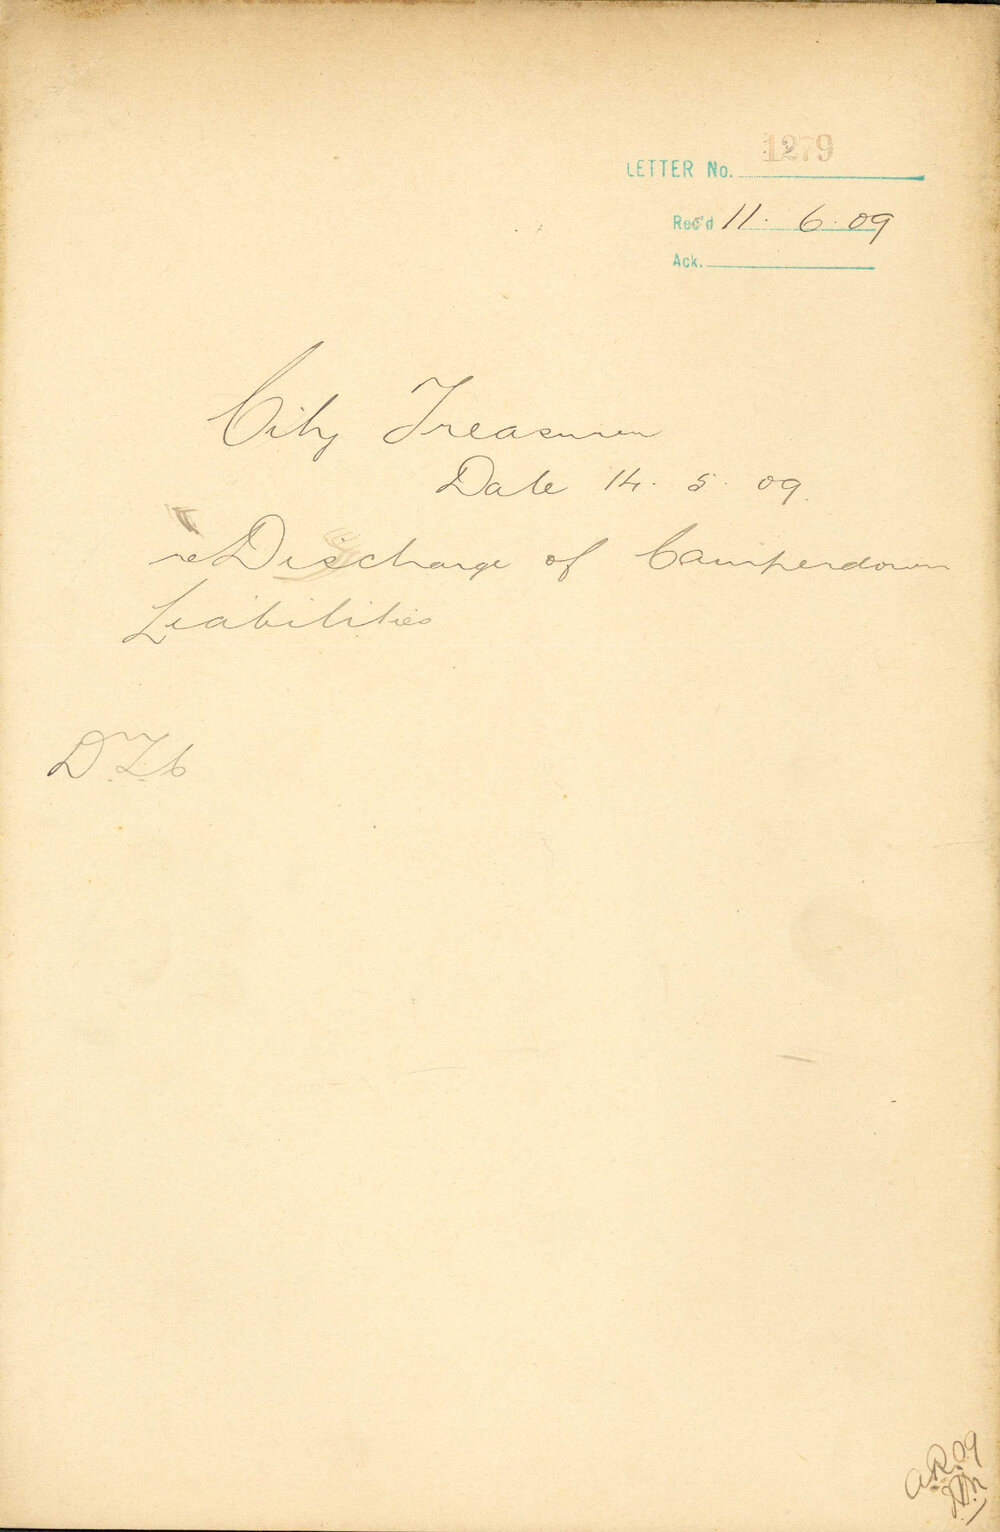 LETTER No. 1279
Rec'd 11. 6. 09
Ack.
City Treasurer
Date 14. 5. 09.
re Discharge of Camperdown
Liabilities
A.R. 09